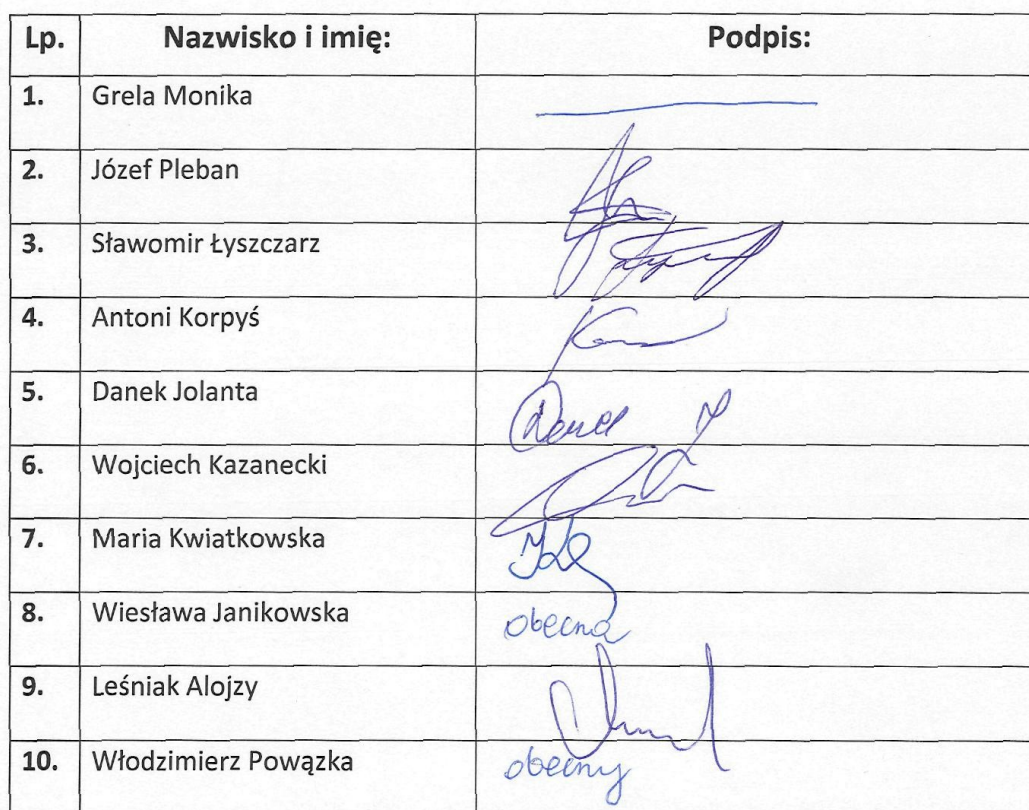 Lp. Nazwisko i imię: Podpis:
1. Grela Monika
2. Józef Pleban
3. Sławomir Łyszczarz
4. Antoni Korpyś
5. Danek Jolanta
6. Wojciech Kazanecki
7. Maria Kwiatkowska
8. Wiesława Janikowska obecna
9. Leśniak Alojzy
10. Włodzimierz Powązka obecny